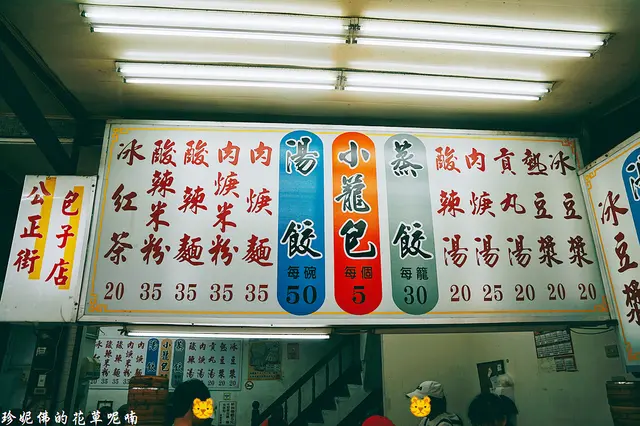 公正街
包子店
冰紅茶 20
酸辣米粉 35
酸辣麵 35
肉焿米粉 35
肉焿麵 35
湯餃 每碗 50
小籠包 每個 5
蒸餃 每籠 30
酸辣湯 20
肉焿湯 25
貢丸湯 20
熱豆漿 20
冰豆漿 20
冰豆漿 20
珍妮佛的花草呢喃